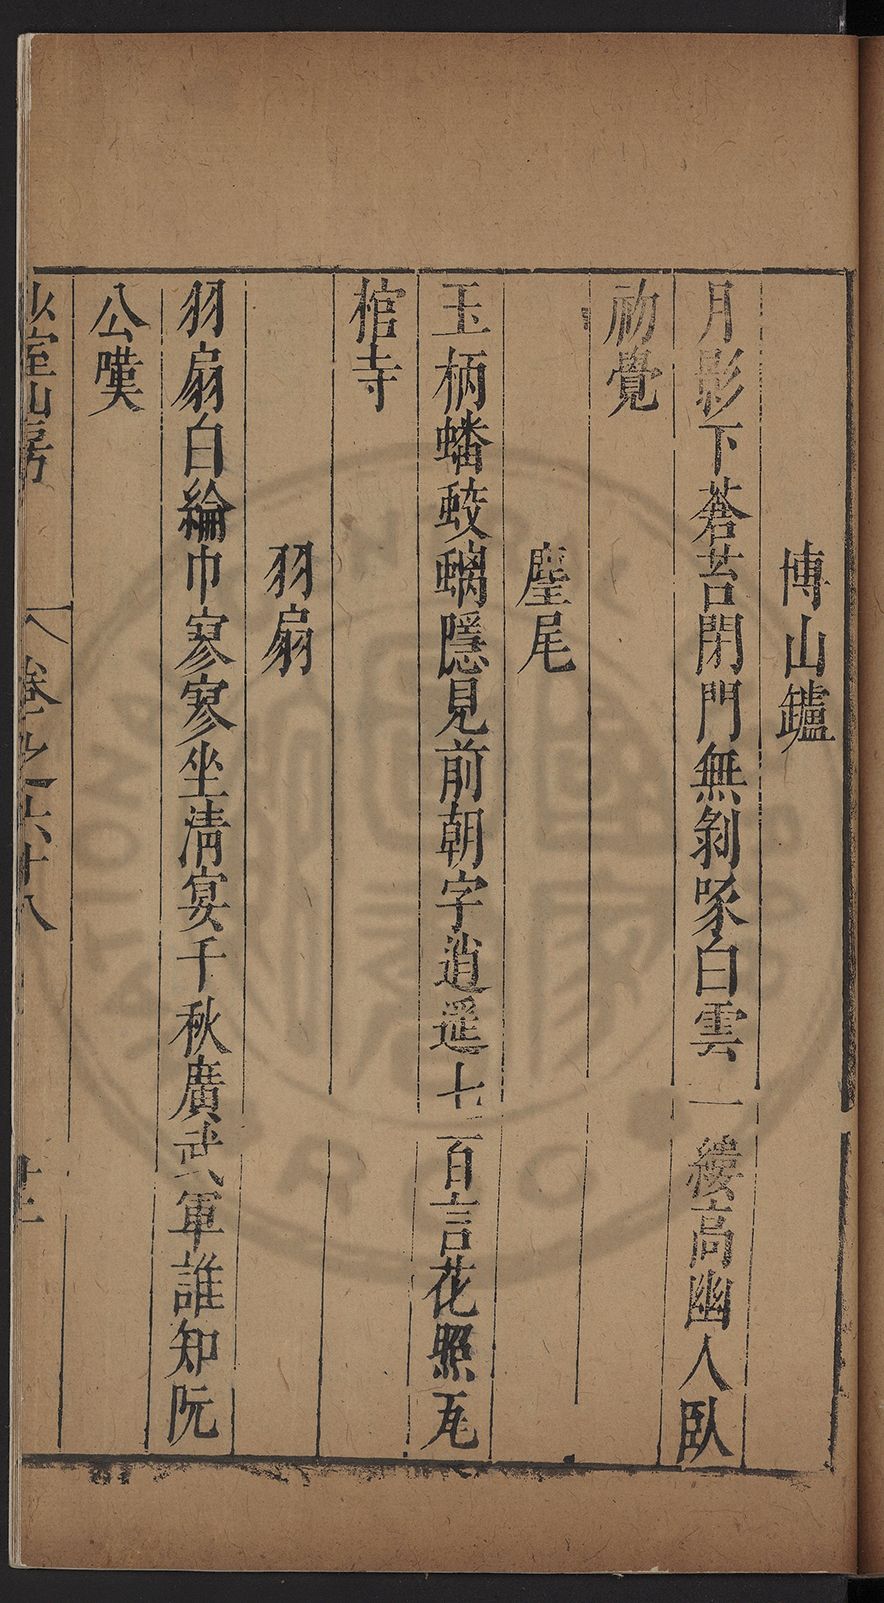 博山鑪
月影下蒼苔閉門無剝啄白雲一縷高幽人臥
初覺
麈尾
玉柄蟠蛟螭隱見前朝字逍遥七百言花照瓦
棺寺
羽扇
羽扇白綸巾寥寥坐清宴千秋廣武軍誰知阮
公嘆
少室山房
卷之六十八